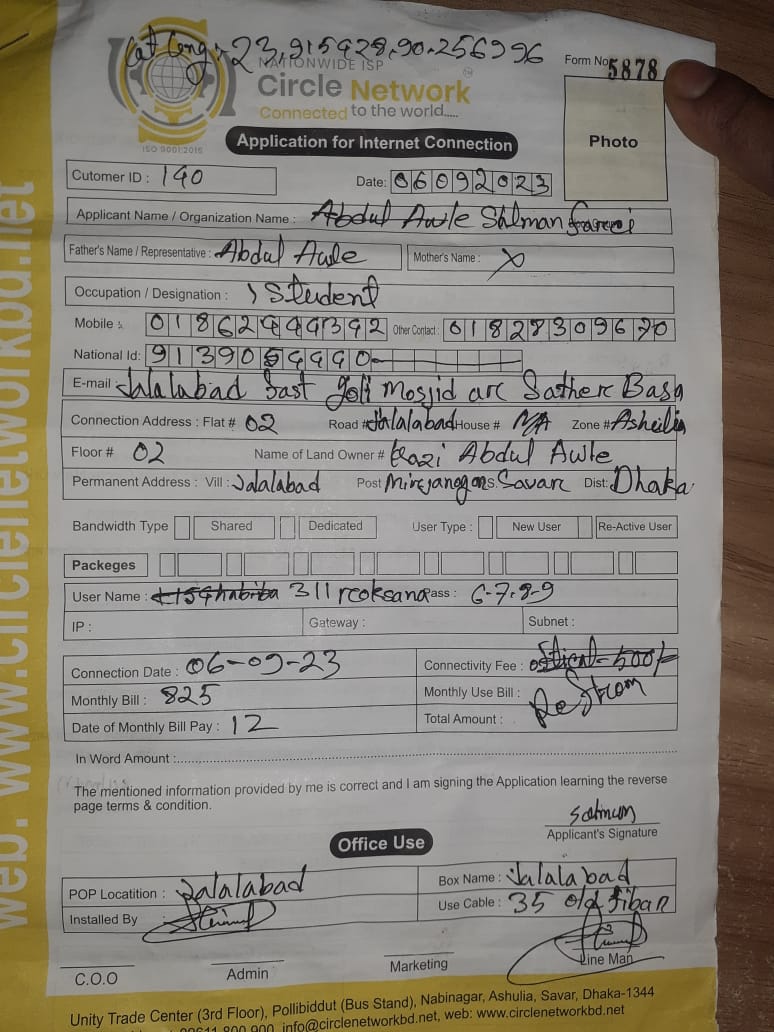 Lat Long: 23.915928,90.256996
NATIONWIDE ISP
Circle Network
Connected to the world.....
ISO 9001:2015
Form No 5878
Photo
Application for Internet Connection
Cutomer ID : 140
Date: 06092023
Applicant Name / Organization Name : Abdul Awle Salman
Father's Name / Representative : Abdul Awle Mother's Name : X
Occupation / Designation : Student
Mobile : Other Contact :
National Id:
E-mail : Jalalabad Mosjid Basa
Connection Address : Flat # 02 Road # Jalalabad House # N/A Zone #
Floor # 02 Name of Land Owner # Kazi Abdul Awle
Permanent Address : Vill : Jalalabad Post Savar Dist: Dhaka
Bandwidth Type Shared Dedicated User Type : New User Re-Active User
Packeges
User Name : 311 roksana Pass : 6-7-8-9
IP : Gateway : Subnet :
Connection Date : 06-09-23 Connectivity Fee :
Monthly Bill : 825 Monthly Use Bill :
Date of Monthly Bill Pay : 12 Total Amount :
In Word Amount :
The mentioned information provided by me is correct and I am signing the Application learning the reverse
page terms & condition.
salman
Applicant's Signature
Office Use
POP Locatition : Jalalabad Box Name : Jalalabad
Installed By Use Cable : 35 old fibar
C.O.O Admin Marketing Line Man
Unity Trade Center (3rd Floor), Pollibiddut (Bus Stand), Nabinagar, Ashulia, Savar, Dhaka-1344
09611 800 900, info@circlenetworkbd.net, web: www.circlenetworkbd.net
web: www.circlenetworkbd.net